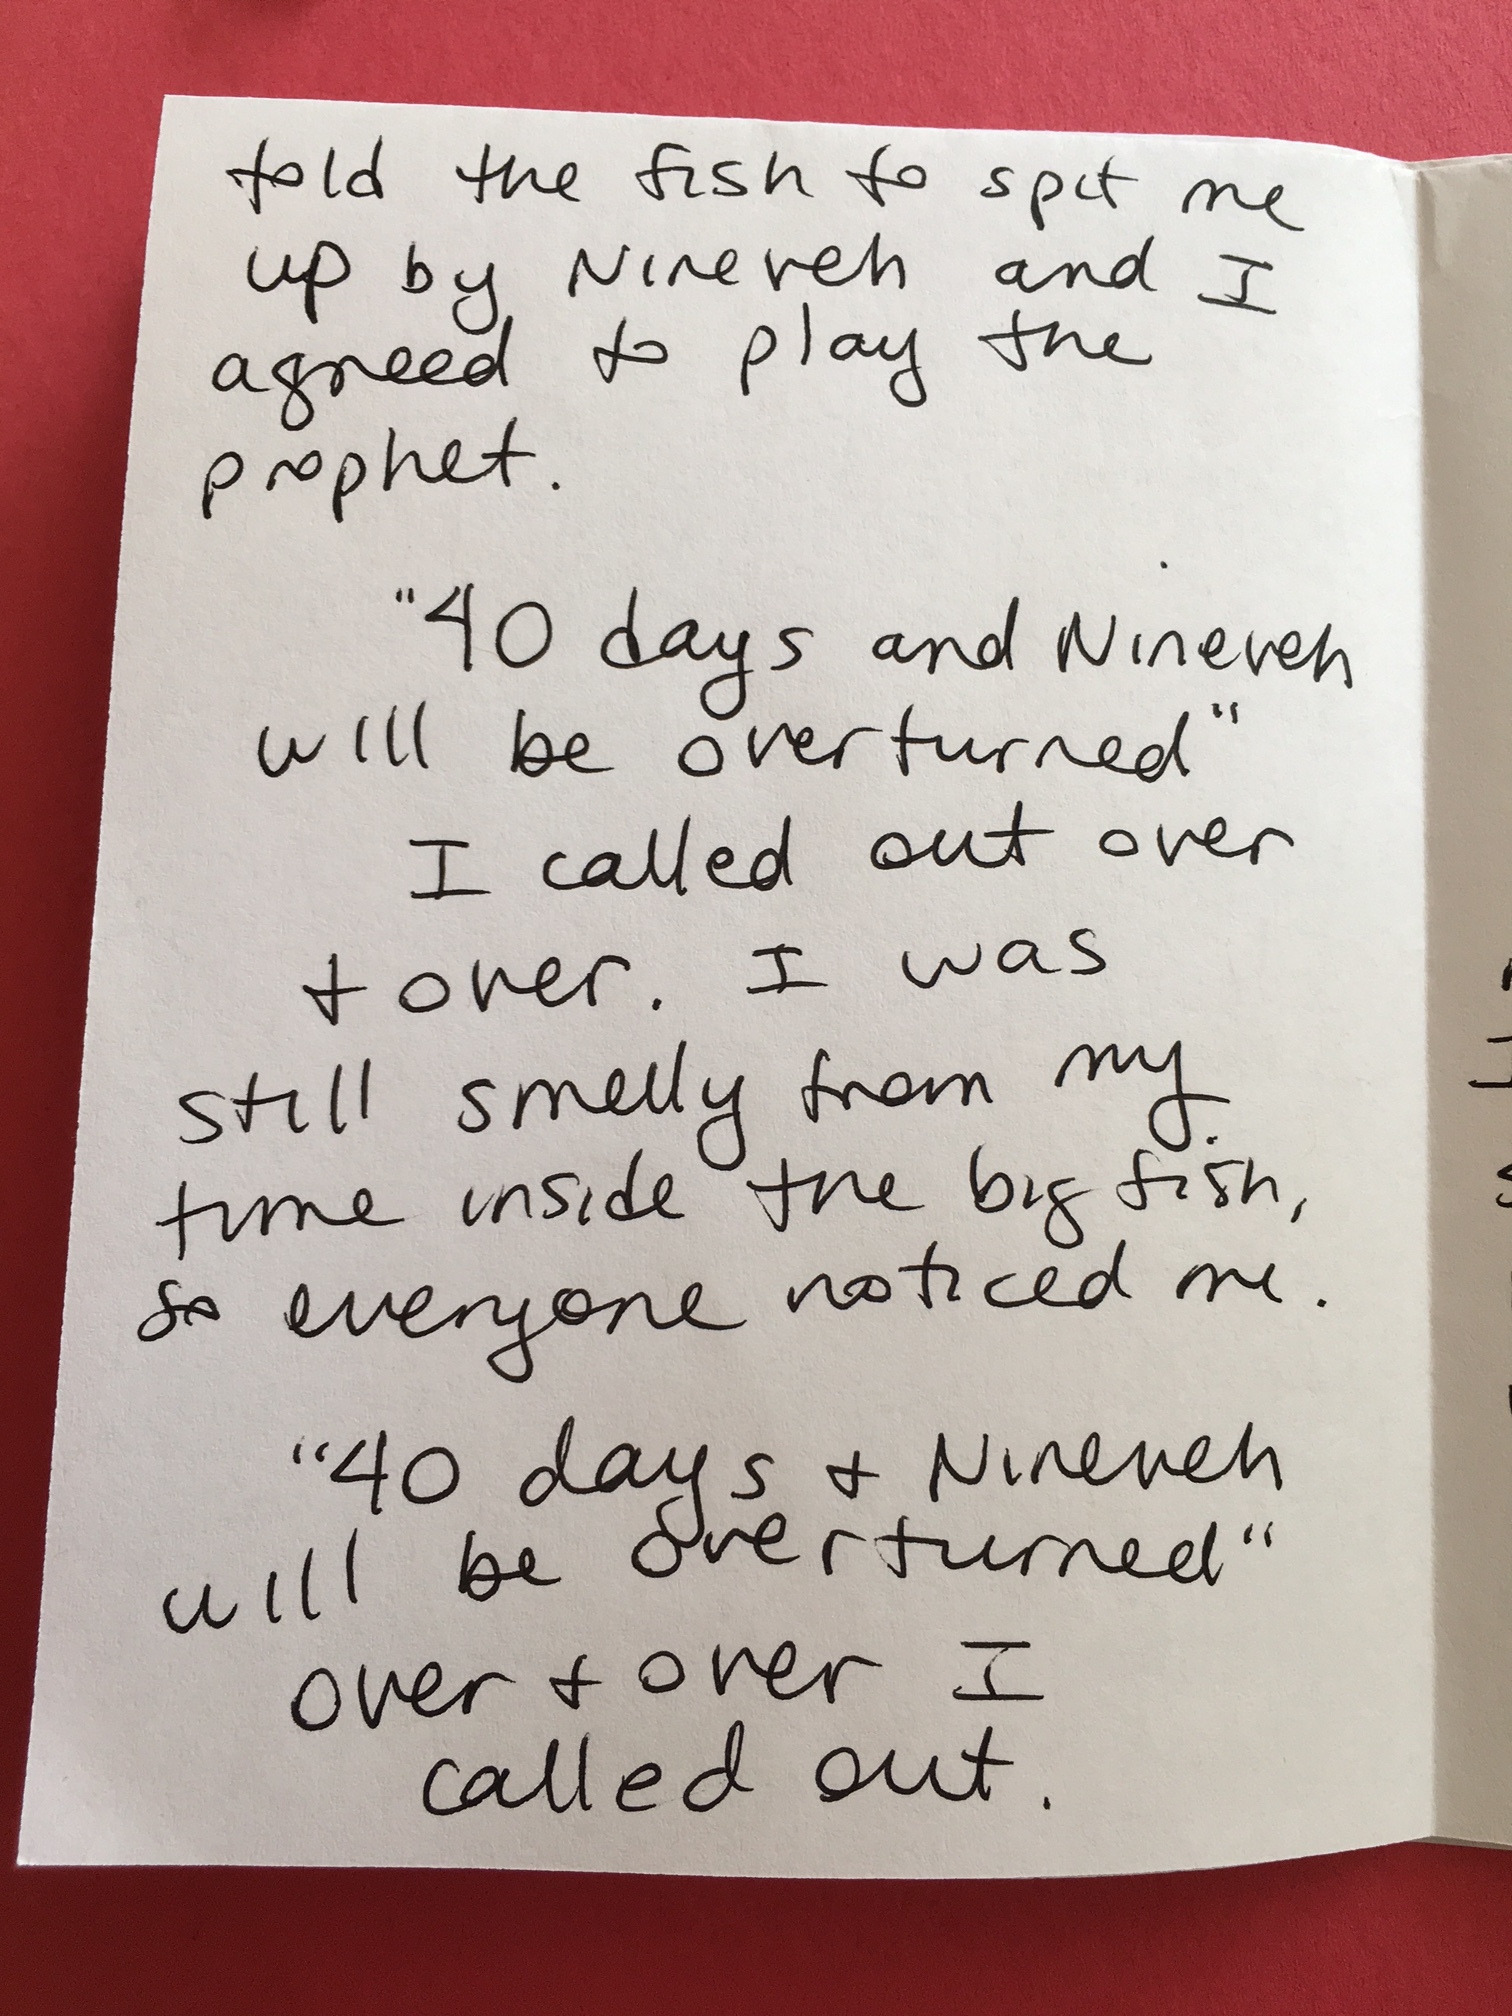 told the fish to spit me
up by Nineveh and I
agreed to play the
prophet.
"40 days and Nineveh
will be overturned"
I called out over
+ over. I was
still smelly from my
time inside the big fish,
so everyone noticed me.
"40 days + Nineveh
will be overturned"
over + over I
called out.